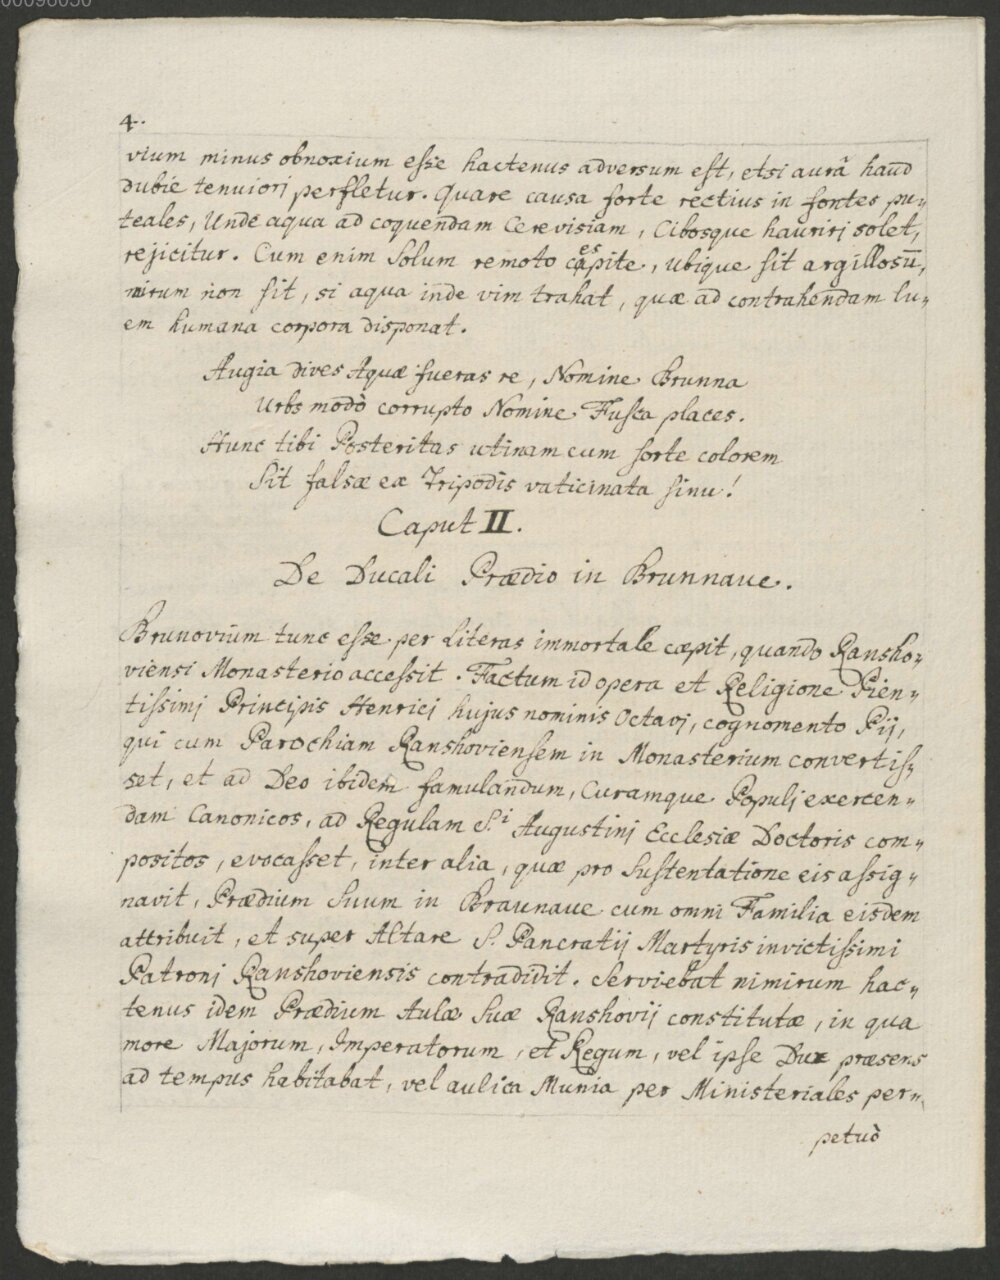 00096050
4.
vium minus obnoxium esse hactenus adversum est, etsi aurâ haud
dubie tenuiorj perfletur. Quare causa forte rectius in fontes pu-
teales, Unde aqua ad coquendam Cerevisiam, Cibosque haurirj solet,
rejicitur. Cum enim Solum remoto cespite, ubique sit argillosū,
mirum non sit, si aqua inde vim trahat, quæ ad contrahendam lu-
em humana corpora disponat.
Augia dives Aquæ fueras re, Nomine Brunna
Urbs modò corrupto Nomine Fusca places.
Hunc tibi Posteritas utinam cum sorte colorem
Sit falsæ ex Tripodis vaticinata sinu!
Caput II.
De Ducali Prædio in Brunnaue.
Brunovium tunc esse per Literas immortale cæpit, quando Ransho-
viensi Monasterio accessit. Factum id opera et Religione Pien-
tissimj Principis Henricj hujus nominis Octavj, cognomento Pij,
qui cum Parochiam Ranshoviensem in Monasterium convertis-
set, et ad Deo ibidem famulandum, Curamque Populj exercen-
dam Canonicos, ad Regulam S.i Augustinj Ecclesiæ Doctoris com-
positos, evocasset, inter alia, quæ pro Sustentatione eis assig-
navit, Prædium Suum in Braunaue cum omni Familia eisdem
attribuit, et super Altare S. Pancratij Martyris invictissimi
Patronj Ranshoviensis contradidit. Serviebat nimirum hac-
tenus idem Prædium Aulæ Suæ Ranshovij constitutæ, in qua
more Majorum, Imperatorum, et Regum, vel ipse Dux præsens
ad tempus habitabat, vel aulica Munia per Ministeriales per-
petuò